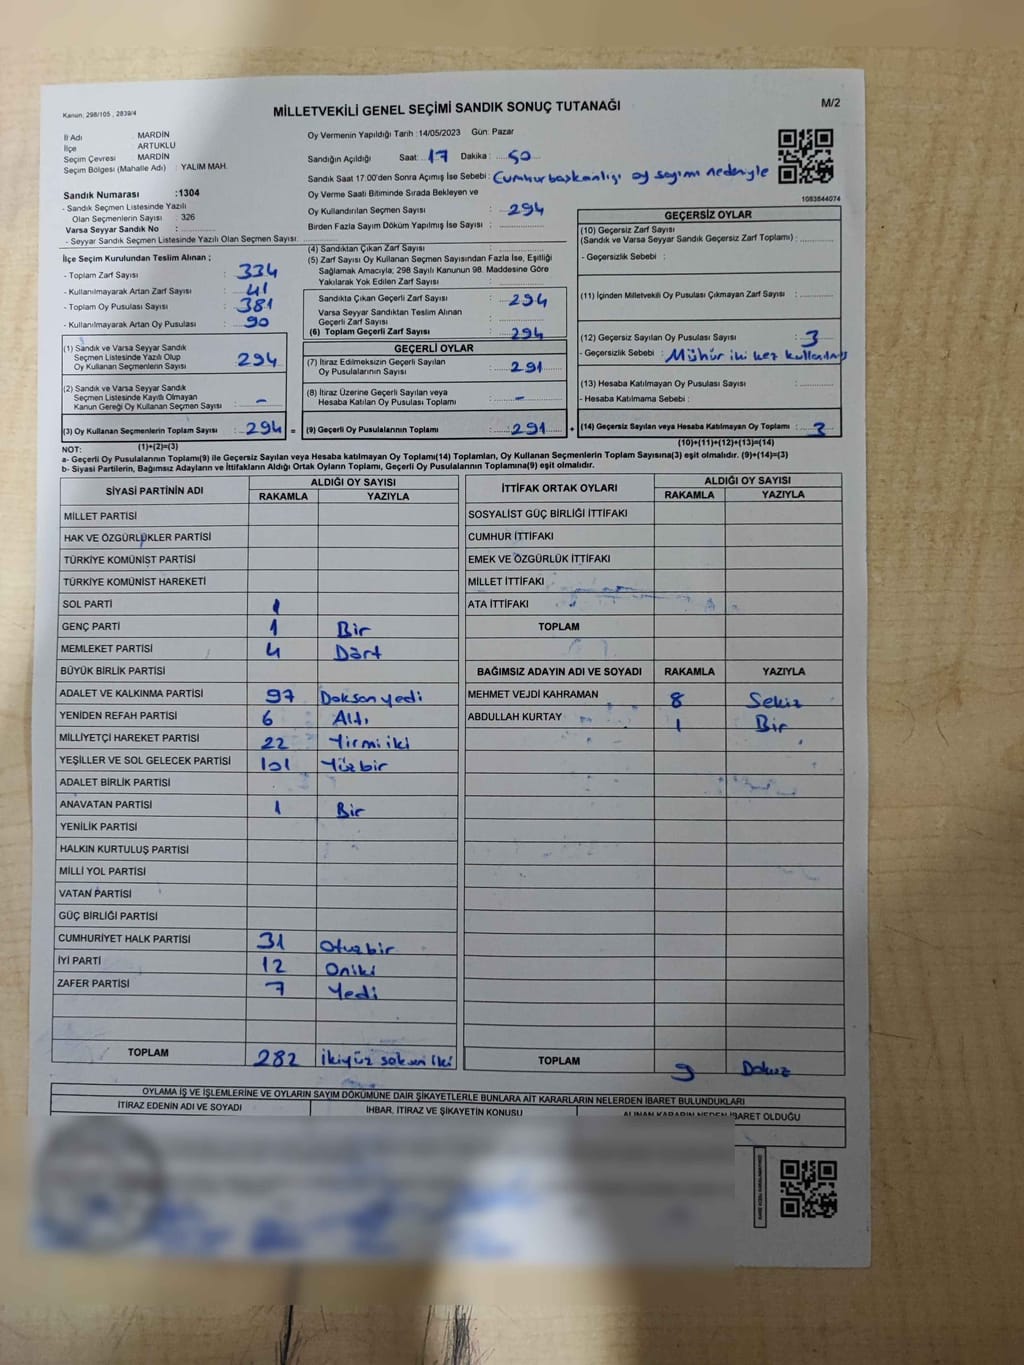 Kanun; 298/105 , 2839/4
MİLLETVEKİLİ GENEL SEÇİMİ SANDIK SONUÇ TUTANAĞI
M/2
İl Adı MARDİN
İlçe ARTUKLU
Seçim Çevresi MARDİN
Seçim Bölgesi (Mahalle Adı) : YALIM MAH.
Sandık Numarası :1304
- Sandık Seçmen Listesinde Yazılı
Olan Seçmenlerin Sayısı : 326
Varsa Seyyar Sandık No :
- Seyyar Sandık Seçmen Listesinde Yazılı Olan Seçmen Sayısı.
Oy Vermenin Yapıldığı Tarih :14/05/2023 Gün: Pazar
Sandığın Açıldığı Saat: 17 Dakika : 50
Sandık Saat 17.00'den Sonra Açımış İse Sebebi : Cumhurbaşkanlığı oy sayımı nedeniyle
Oy Verme Saati Bitiminde Sırada Bekleyen ve
Oy Kullandırılan Seçmen Sayısı : 294
Birden Fazla Sayım Döküm Yapılmış İse Sayısı :
1083844074
İlçe Seçim Kurulundan Teslim Alınan ;
- Toplam Zarf Sayısı : 334
- Kullanılmayarak Artan Zarf Sayısı : 41
- Toplam Oy Pusulası Sayısı : 381
- Kullanılmayarak Artan Oy Pusulası : 90
(1) Sandık ve Varsa Seyyar Sandık
Seçmen Listesinde Yazılı Olup
Oy Kullanan Seçmenlerin Sayısı : 294
(2) Sandık ve Varsa Seyyar Sandık
Seçmen Listesinde Kayıtlı Olmayan
Kanun Gereği Oy Kullanan Seçmen Sayısı : -
(3) Oy Kullanan Seçmenlerin Toplam Sayısı : 294 =
(1)+(2)=(3)
(4) Sandıktan Çıkan Zarf Sayısı :
(5) Zarf Sayısı Oy Kullanan Seçmen Sayısından Fazla İse, Eşitliği
Sağlamak Amacıyla; 298 Sayılı Kanunun 98. Maddesine Göre
Yakılarak Yok Edilen Zarf Sayısı :
Sandıkta Çıkan Geçerli Zarf Sayısı : 294
Varsa Seyyar Sandıktan Teslim Alınan
Geçerli Zarf Sayısı :
(6) Toplam Geçerli Zarf Sayısı : 294
GEÇERLİ OYLAR
(7) İtiraz Edilmeksizin Geçerli Sayılan
Oy Pusulalarının Sayısı : 291
(8) İtiraz Üzerine Geçerli Sayılan veya
Hesaba Katılan Oy Pusulası Toplamı : -
(9) Geçerli Oy Pusulalarının Toplamı : 291 +
GEÇERSİZ OYLAR
(10) Geçersiz Zarf Sayısı
(Sandık ve Varsa Seyyar Sandık Geçersiz Zarf Toplamı) :
- Geçersizlik Sebebi :
(11) İçinden Milletvekili Oy Pusulası Çıkmayan Zarf Sayısı :
(12) Geçersiz Sayılan Oy Pusulası Sayısı : 3
- Geçersizlik Sebebi : Mühür iki kez kullanılmış
(13) Hesaba Katılmayan Oy Pusulası Sayısı :
- Hesaba Katılmama Sebebi :
(14) Geçersiz Sayılan veya Hesaba Katılmayan Oy Toplamı : 3
(10)+(11)+(12)+(13)=(14)
NOT:
a- Geçerli Oy Pusulalarının Toplamı(9) ile Geçersiz Sayılan veya Hesaba katılmayan Oy Toplamı(14) Toplamları, Oy Kullanan Seçmenlerin Toplam Sayısına(3) eşit olmalıdır. (9)+(14)=(3)
b- Siyasi Partilerin, Bağımsız Adayların ve İttifakların Aldığı Ortak Oyların Toplamı, Geçerli Oy Pusulalarının Toplamına(9) eşit olmalıdır.
SİYASİ PARTİNİN ADI ALDIĞI OY SAYISI
RAKAMLA YAZIYLA
MİLLET PARTİSİ
HAK VE ÖZGÜRLÜKLER PARTİSİ
TÜRKİYE KOMÜNİST PARTİSİ
TÜRKİYE KOMÜNİST HAREKETİ
SOL PARTİ 1
GENÇ PARTİ 1 Bir
MEMLEKET PARTİSİ 4 Dört
BÜYÜK BİRLİK PARTİSİ
ADALET VE KALKINMA PARTİSİ 97 Doksanyedi
YENİDEN REFAH PARTİSİ 6 Altı
MİLLİYETÇİ HAREKET PARTİSİ 22 Yirmiiki
YEŞİLLER VE SOL GELECEK PARTİSİ 101 Yüzbir
ADALET BİRLİK PARTİSİ
ANAVATAN PARTİSİ 1 Bir
YENİLİK PARTİSİ
HALKIN KURTULUŞ PARTİSİ
MİLLİ YOL PARTİSİ
VATAN PARTİSİ
GÜÇ BİRLİĞİ PARTİSİ
CUMHURİYET HALK PARTİSİ 31 Otuzbir
İYİ PARTİ 12 Oniki
ZAFER PARTİSİ 7 Yedi
TOPLAM 282 İkiyüz seksen iki
İTTİFAK ORTAK OYLARI ALDIĞI OY SAYISI
RAKAMLA YAZIYLA
SOSYALİST GÜÇ BİRLİĞİ İTTİFAKI
CUMHUR İTTİFAKI
EMEK VE ÖZGÜRLÜK İTTİFAKI
MİLLET İTTİFAKI
ATA İTTİFAKI
TOPLAM
BAĞIMSIZ ADAYIN ADI VE SOYADI RAKAMLA YAZIYLA
MEHMET VEJDİ KAHRAMAN 8 Sekiz
ABDULLAH KURTAY 1 Bir
TOPLAM 9 Dokuz
OYLAMA İŞ VE İŞLEMLERİNE VE OYLARIN SAYIM DÖKÜMÜNE DAİR ŞİKAYETLERLE BUNLARA AİT KARARLARIN NELERDEN İBARET BULUNDUKLARI
İTİRAZ EDENİN ADI VE SOYADI İHBAR, İTİRAZ VE ŞİKAYETİN KONUSU ALINAN KARARIN NEDEN İBARET OLDUĞU